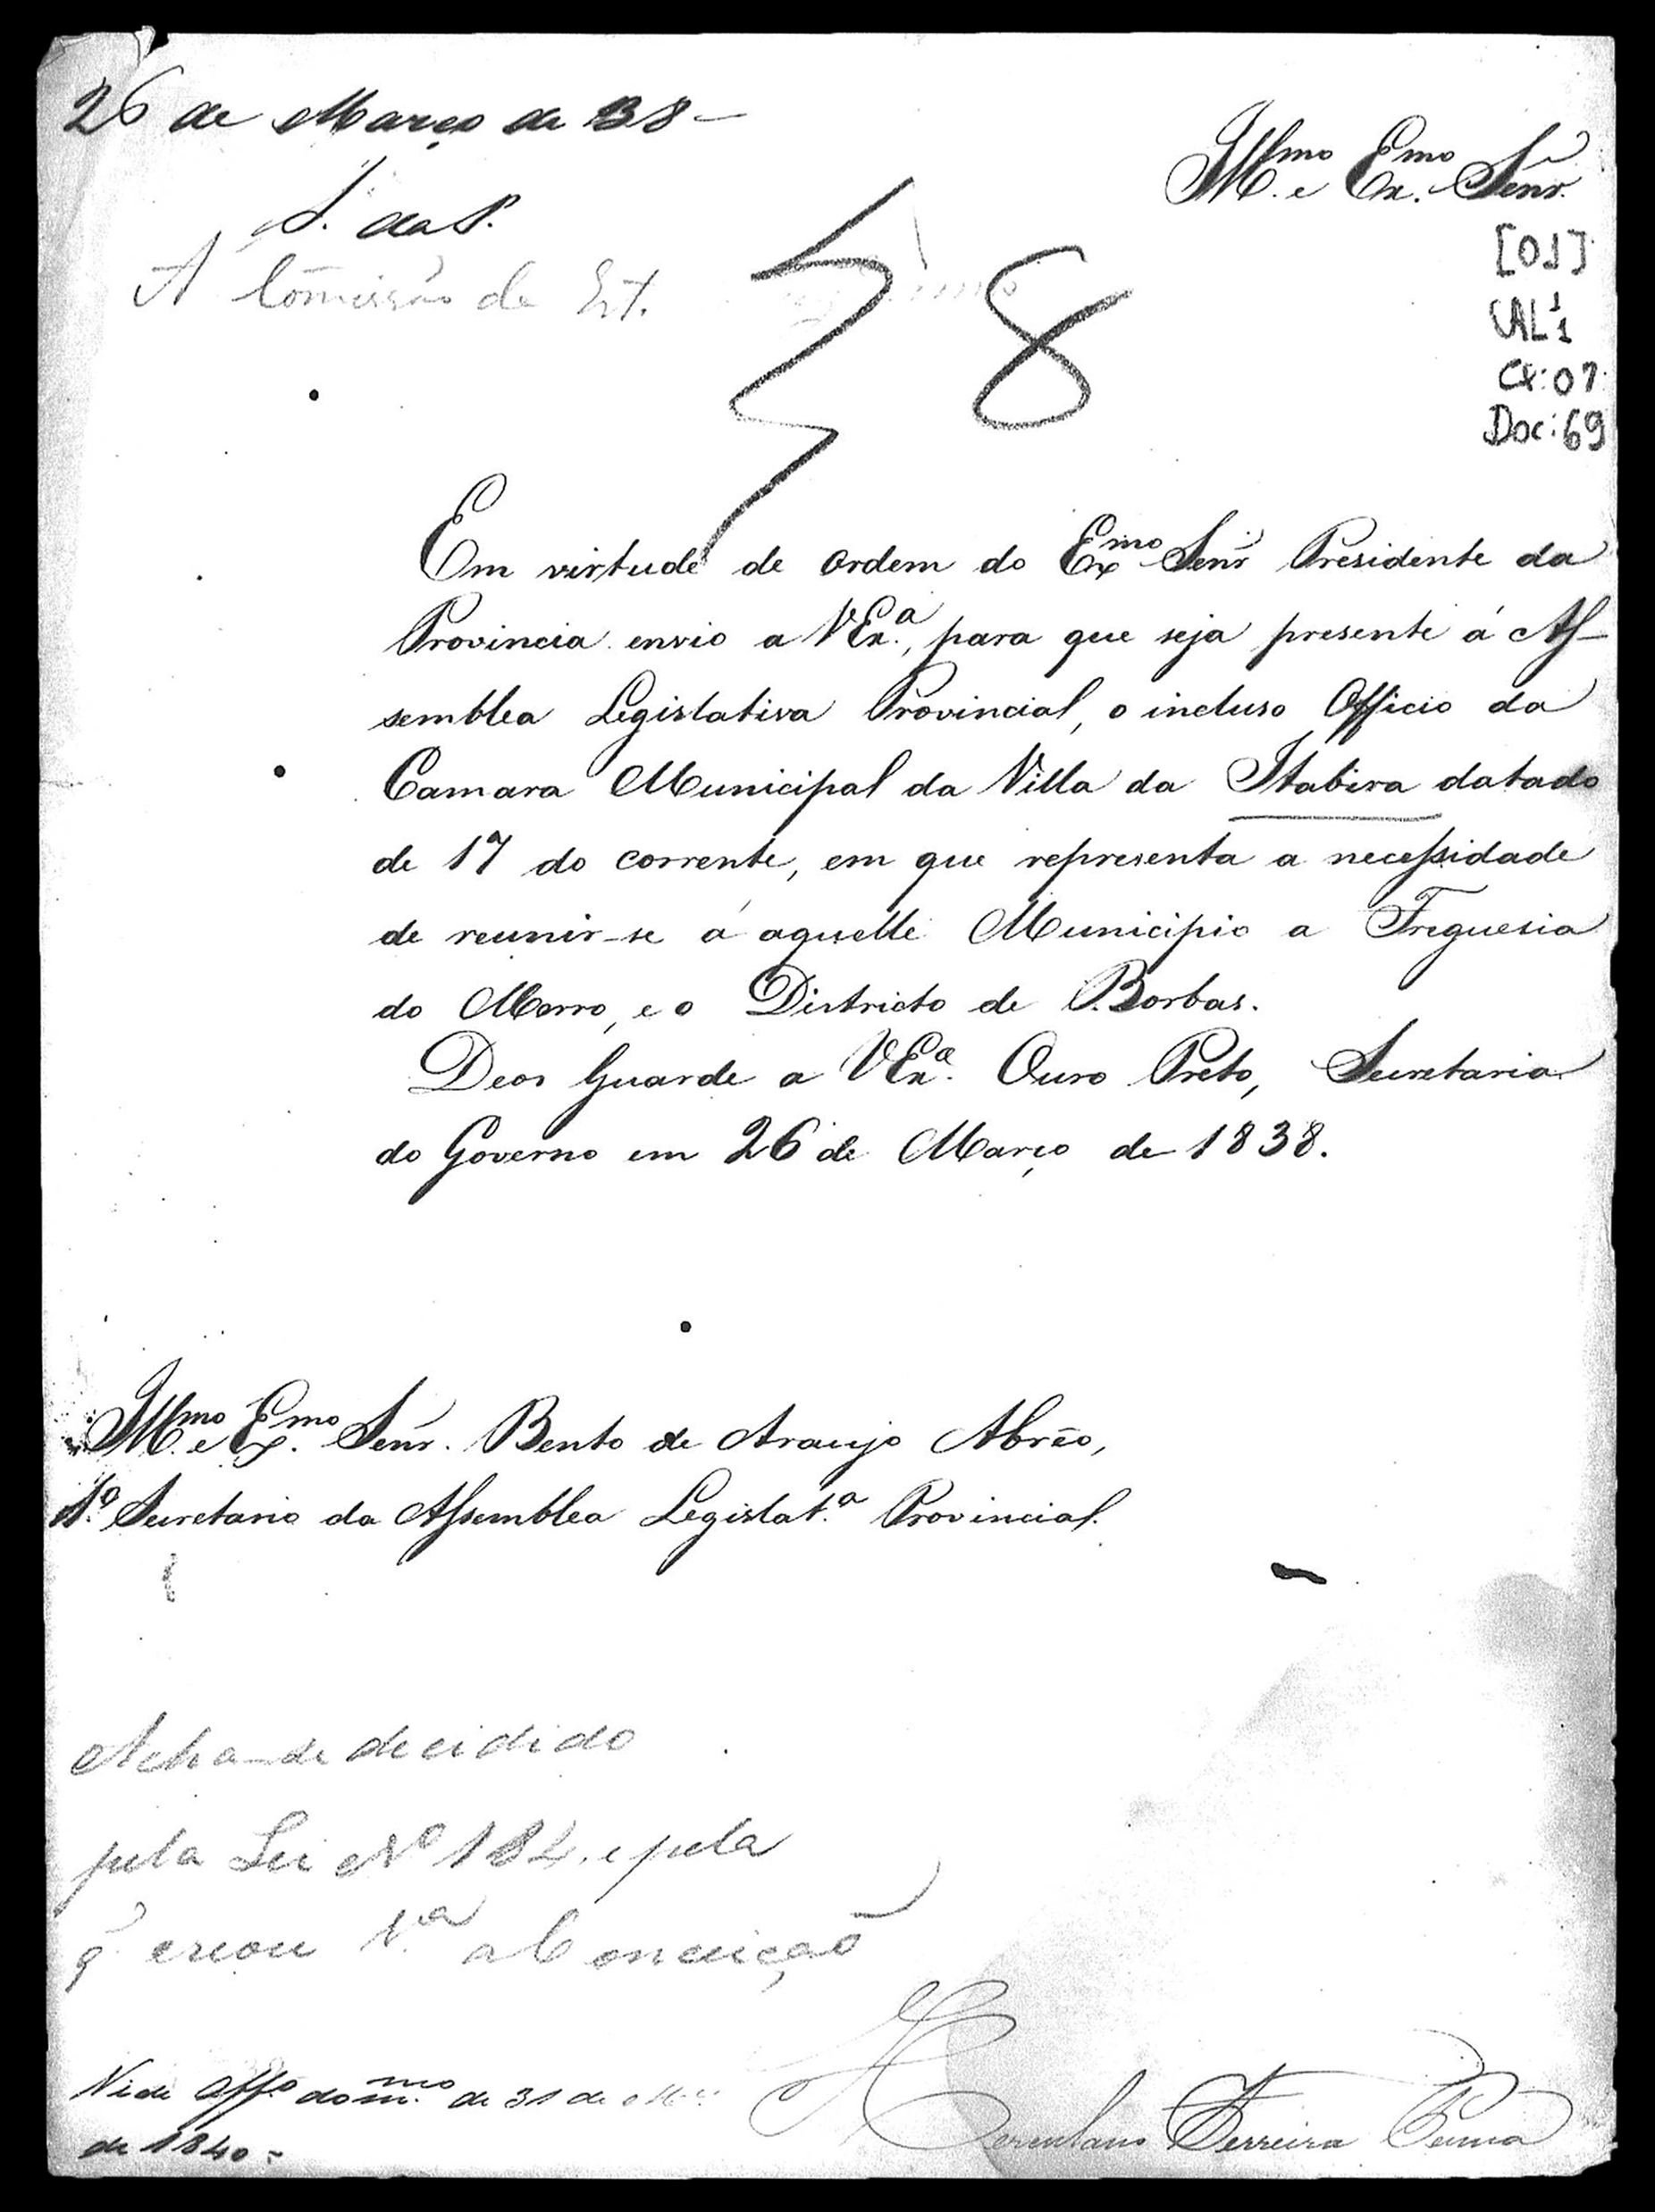 26 de Março de 838-
Illmo. e Exmo. Senr.
S. da P.
A Comissão de Est.
[01]
AL 1
1
CX: 07
Doc: 69
8
Em virtude de ordem do Exmo Senr Presidente da
Provincia envio a VExa., para que seja presente á As-
semblea Legislativa Provincial, o incluso Officio da
Camara Municipal da Villa da Itabira datado
de 17 do corrente, em que representa a necessidade
de reunir-se á aquelle Municipio a Freguesia
do Morro, e o Districto de P. Borbas.
Deos Guarde a VExa. Ouro Preto, Secretaria
do Governo em 26 de Março de 1838.
Illmo. e Exmo. Senr. Bento de Araujo Abrêo,
1º. Secretario da Assemblea Legislat.ª Provincial.
Acha-se decidido
pela Lei Nº 184, e pela
q̃ creou V.ª a Conceição
Vide Offº do mmo. de 31 de
de 1840-
Herculano Ferreira Penna